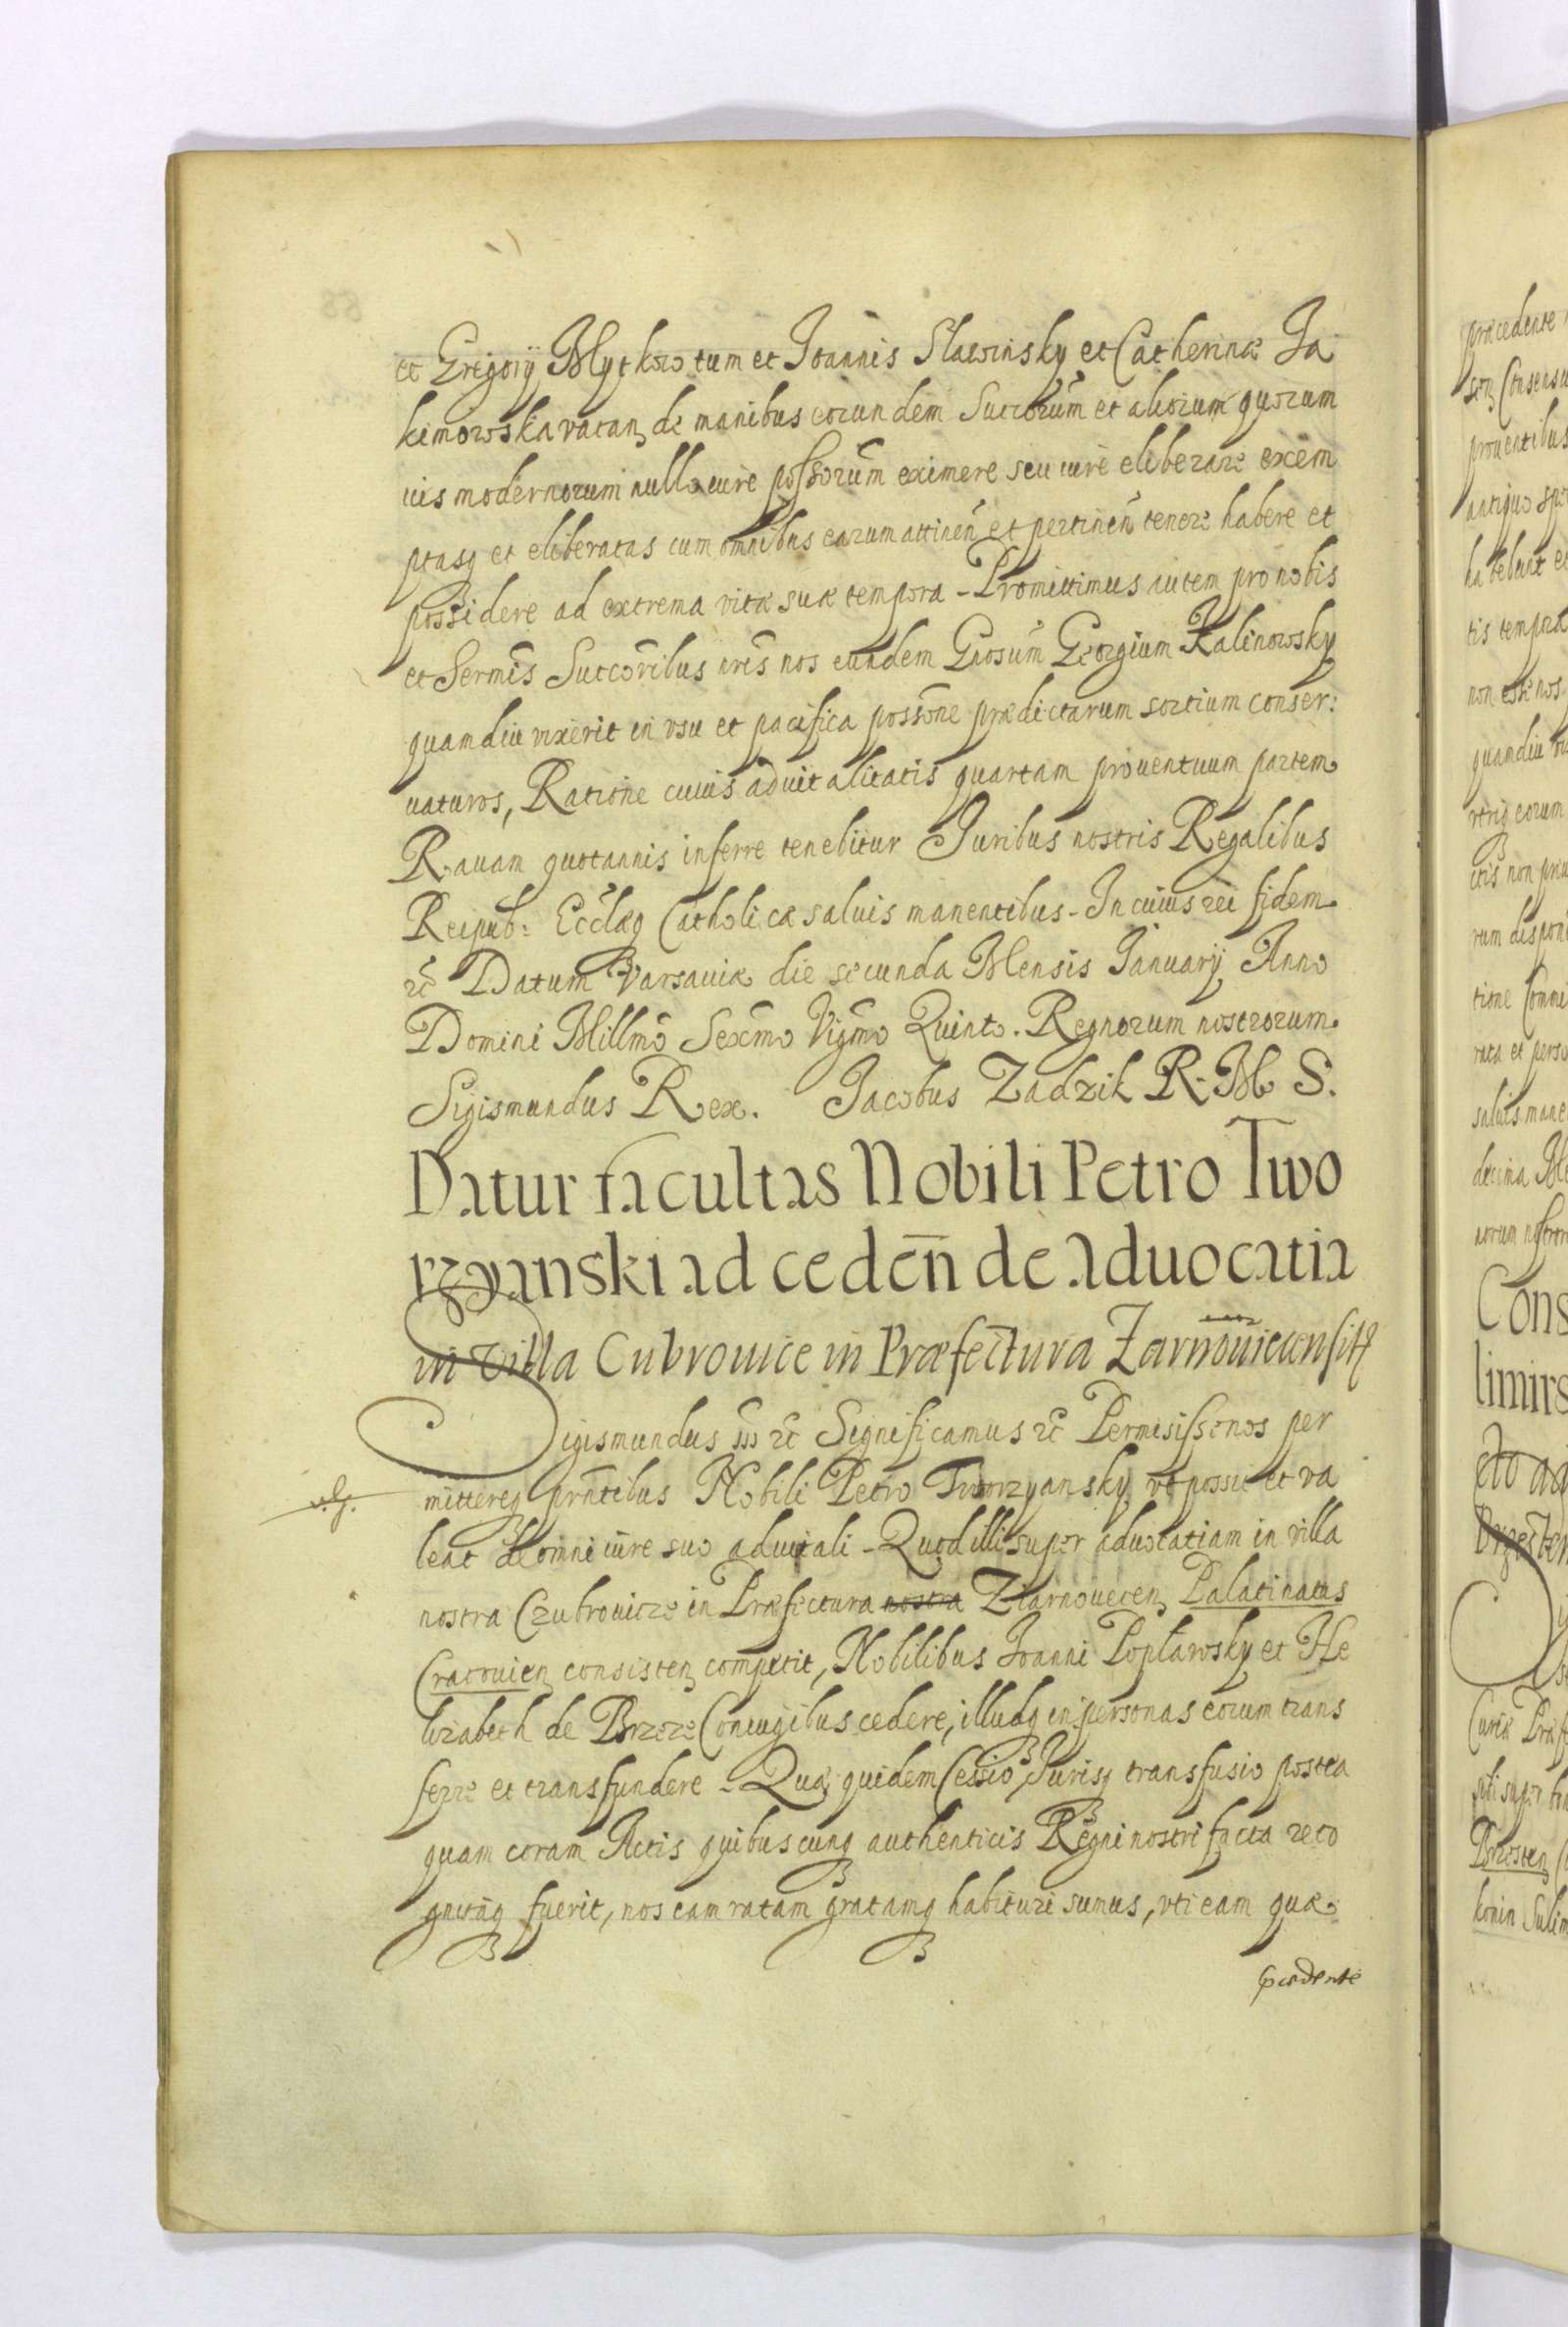 et Gregorÿ Mytkow tum et Joannis Slawinsky et Catherinæ Ja
kimowska vacan de manibus eorundem Succorum et aliorum quorum
vis modernorum nullo iure possorum eximere seu iure eliberare exem
ptasq et eliberatas cum omnibus earum attinen et pertinen tenere habere et
possidere ad extrema vitæ suæ tempora - Promittimus autem pro nobis
et Sermis Succoribus nris nos eundem Gnosum Georgium Kalinowsky
quamdiu vixerit in vsu et pacifica possone prædictarum sortium conser:
vaturos, Ratione cuius aduitalitatis quartam prouentuum partem
Rauam quotannis inferre tenebitur Juribus nostris Regalibus
Reipub: Ecclæq Catholicæ saluis manentibus - In cuius rei fidem
etc Datum Varsauiæ die secunda Mensis Januarÿ Anno
Domini Millmo Sexmo Vigmo Quinto. Regnorum nostrorum
Sigismundus Rex. Jacobus Zadzik R. M S.
Datur facultas Nobili Petro Two
rzyanski ad ceden de aduocatia
in villa Cubrouice in Præfectura Zarnouiecensi
Sigismundus III etc Significamus etc Permisisse nos per
mittereq prntibus Nobili Petro Tworzyansky vt possit et va
leat de omni iure suo aduitali - Quod illi super aduocatiam in villa
nostra Czubrouicze in Præfectura nostra Ziarnouecen Palatinatus
Cracouien consisten competit, Nobilibus Joanni Poplawsky et He
lizabeth de Brzeze Coniugibus cedere, illudq in personas eorum trans
ferre et transfundere - Quæ quidem Cessio Jurisq transfusio postea
quam coram Actis quibuscunq authenticis Regni nostri facta reco
gnitaq fuerit, nos eam ratam gratamq habituri sumus, vti eam quæ